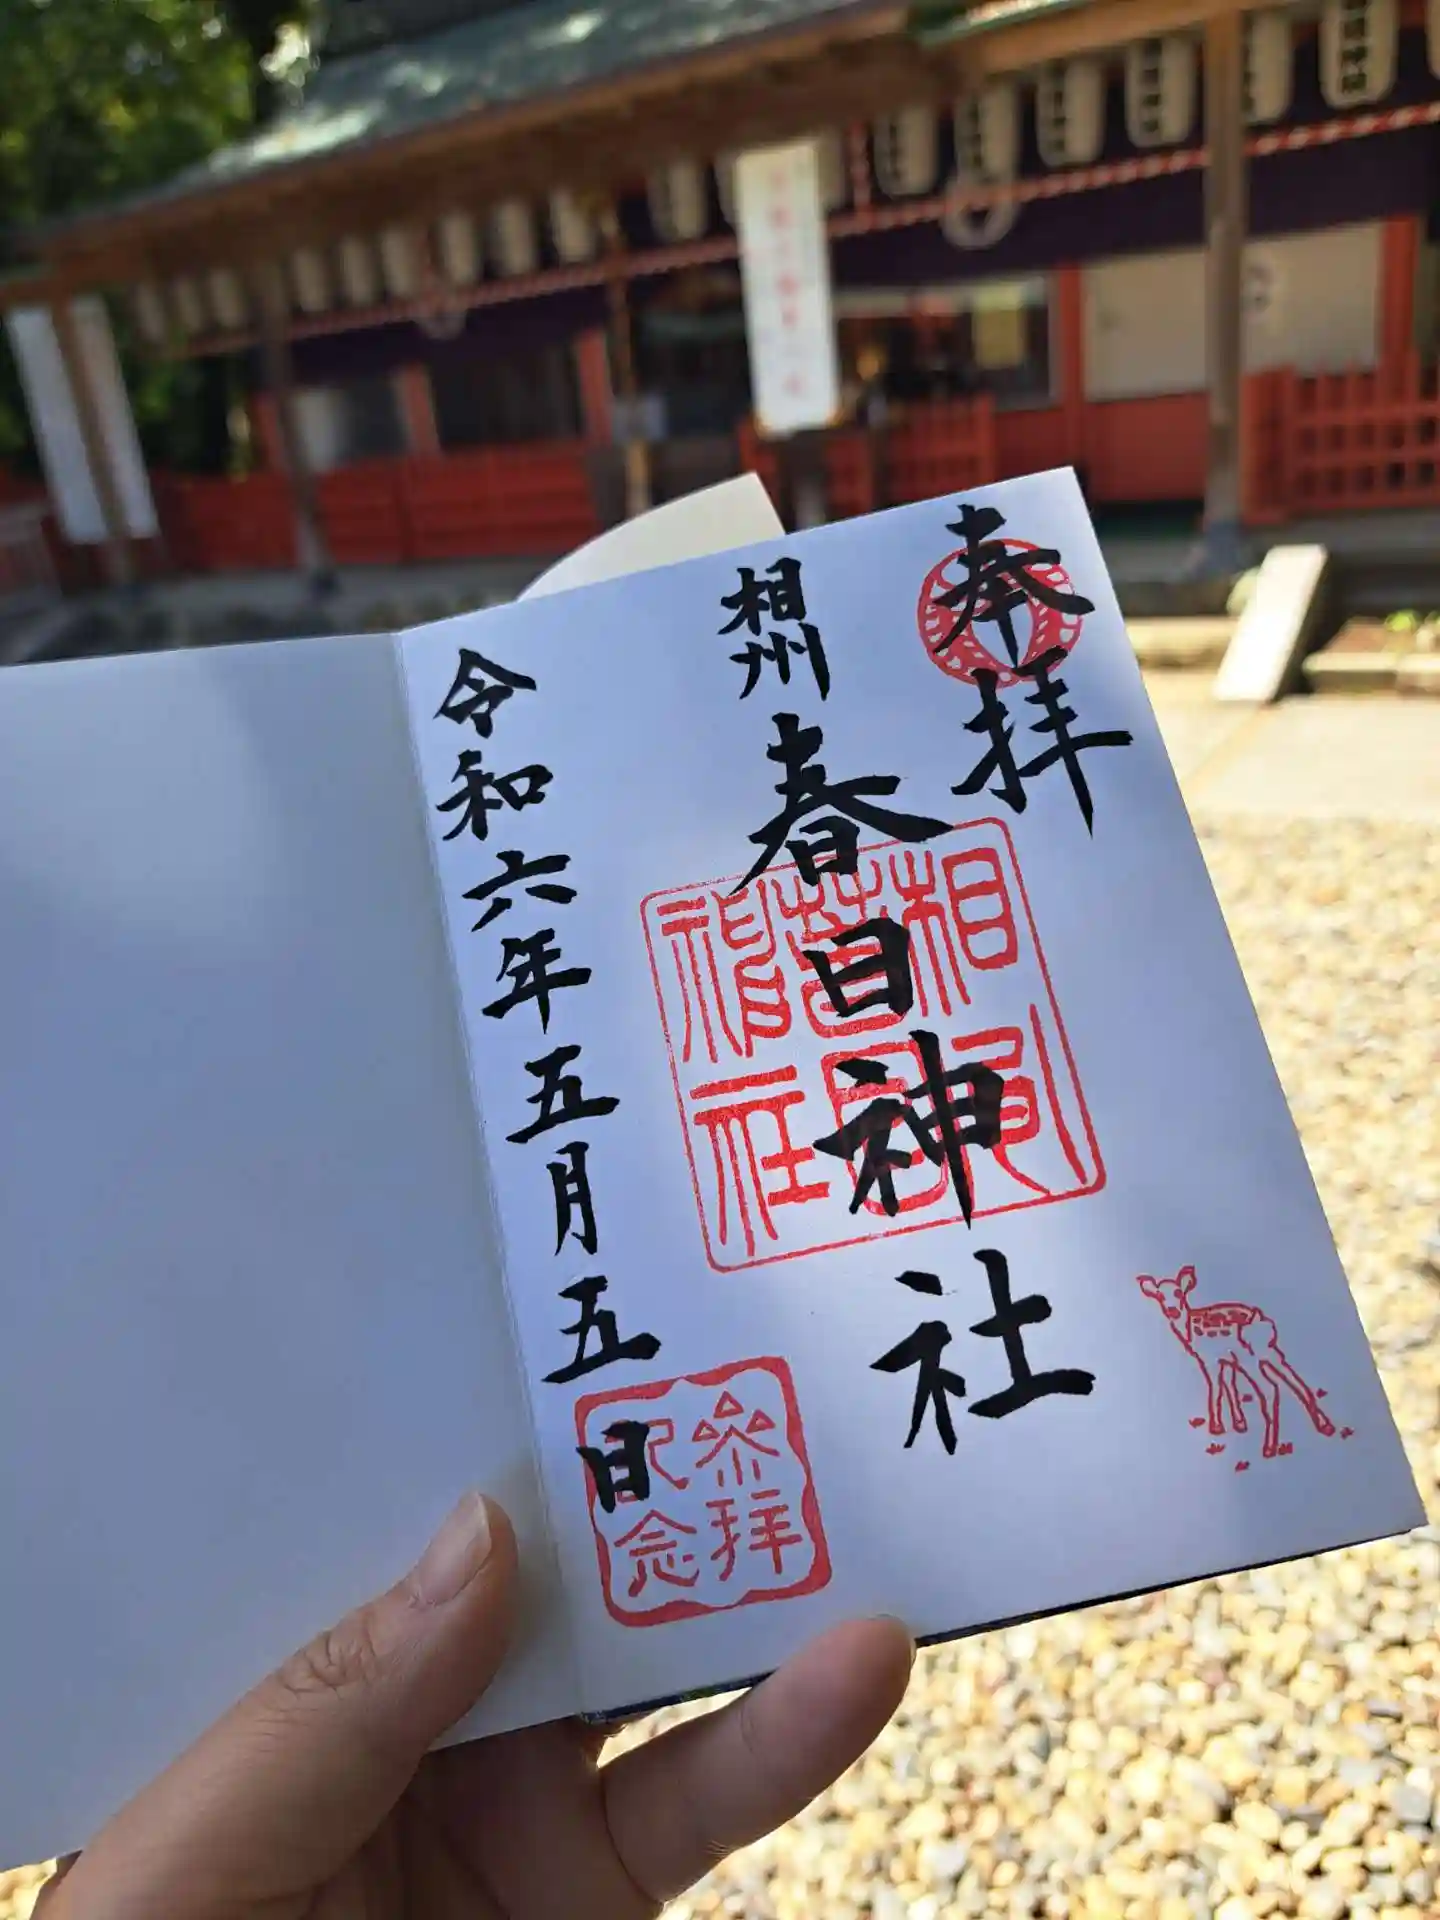 奉拝
相州
春日神社
相州
春日
神社
令和六年五月五日
参拝
記念